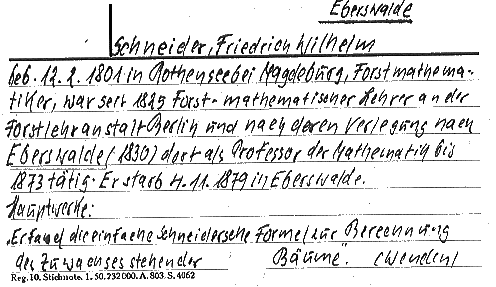 Eberswalde
Schneider, Friedrich Wilhelm
geb. 12. 2. 1801 in Rothensee bei Magdeburg, Forstmathema-
tiker, war seit 1825 Forst-mathematischer Lehrer an der
Forstlehranstalt Berlin und nach deren Verlegung nach
Eberswalde (1830) dort als Professor der Mathematik bis
1873 tätig. Er starb 4. 11. 1879 in Eberswalde.
Hauptwerke:
"Erfand die einfache Schneidersche Formel zur Berechnung
des Zuwachses stehender Bäume". (wenden)
Reg. 10. Stichnote. 1. 50. 232000. A. 803. S. 4062